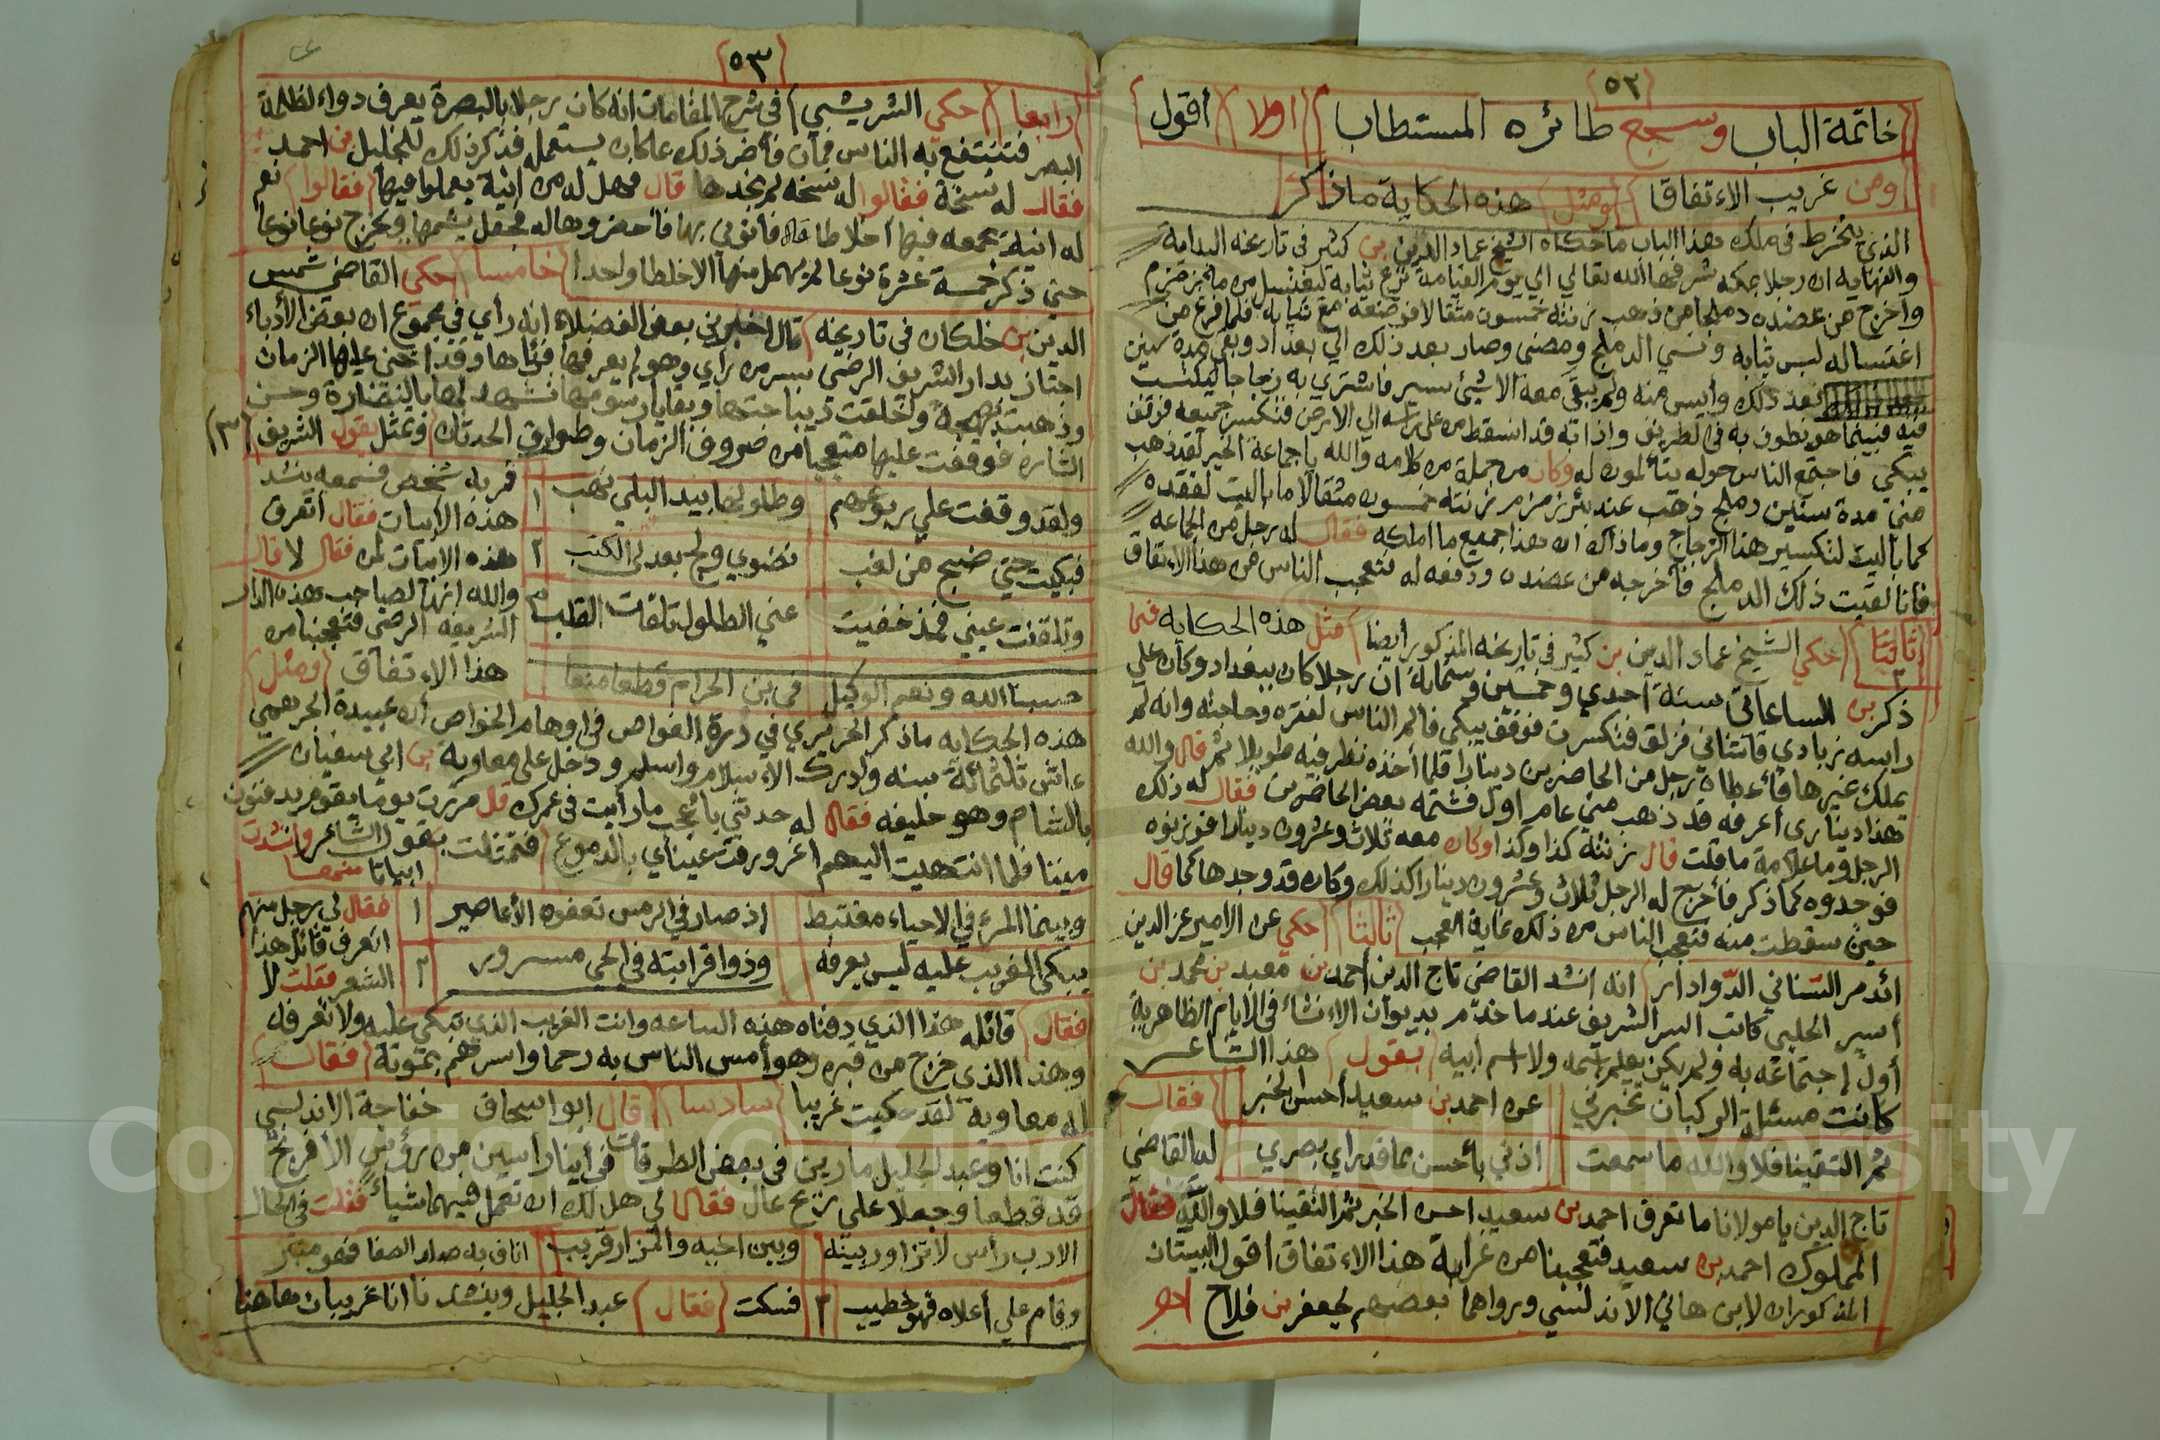 (٥٢)
خاتمة الباب وسجع طائره المستطاب اولا أقول
ومن غريب الاءتفاقا ومثل هذه الحكاية ماذكر
الذي ينخرط في ملك هذا الباب ماحكاه الشيخ عماد الدين بن كثير في تاريخه البداية
والنهايه ان رجلا بمكه شرفها الله تعالي الي يوم القيامة نزع ثيابه ليغتسل من ماء زمزم
وأخرج من عضده دملجا من ذهب زنته خمسون مثقالا فوضعه مع ثيابه فلما فرغ من
اغتساله لبس ثيابه ونسي الدملج ومضي وصار بعد ذلك الي بغداد وبقي مدة سنين
بعد ذلك وأيس منه ولم يبقي معه الا شيئ يسير فاشتري به زجاجا ليكتسب
فيه فبينما هو يطوف به في الطريق واذا به قد انسقط من علي راسه الي الارض فتكسر جميعه فوقف
يبكي فاجتمع الناس حوله يتألمون له وكان من جملة من كلامه والله ياجماعة الخير لقد ذهب
مني مدة سنين دملج ذهب عند بئر زمزم زنته خمسون مثقالا ما باليت لفقده
كما باليت لتكسير هذا الزجاج وماذاك الا ان هذا جميع ما املكه فقال له رجل من الجماعه
فأنا لقيت ذلك الدملج فأخرجه من عضده ودفعه له فتعجب الناس من هذا الاءتفاق
ثانيا حكي الشيخ عماد الدين بن كثير في تاريخه المذكور أيضا مثل هذه الحكايه فما
ذكر بن الساعاتي سنة أحدي وخمسين وستماية ان رجلا كان ببغداد وكان علي
راسه زبادي قاشاني فزلق فتكسرت فوقف يبكي فألم الناس لفقره وحاجته وانه لم
يملك غيرها فأعطاه رجل من الحاضرين دينارا فلما أخذه نظر فيه طويلا ثم قال والله
هذا ديناري أعرفه قد ذهب مني عام اول فشتمه بعض الحاضرين فقال له ذلك
الرجل وما علامة ما قلت قال زنته كذا وكذا وكان معه ثلاث وعشرون دينارا فوزنوه
فوجدوه كما ذكر فأخرج له الرجل ثلاث وعشرون دينارا كذلك وكان قد وجدها كما قال
حين سقطت منه فتعجب الناس من ذلك غاية العجب ثالثا حكي عن الامير عز الدين
ائدمر السناني الدوادار انه انشد القاضي تاج الدين أحمد بن سعيد بن محمد بن
أسير الحلبي كاتب السر الشريف عندما خدم بديوان الانشاء في الايام الظاهرية
أول إجتماعه به ولم يكن يعلم إسمه ولا اسم ابيه بقول هذا الشاعر
كانت مسئلة الركبان تخبرني عن احمد بن سعيد أحسن الخبر فقال
ثم التقينا فلا والله ما سمعت اذني بأحسن مما قد راي بصري له القاضي
تاج الدين يا مولانا ما تعرق احمد بن سعيد احسن الخبر ثم التقينا فلا والله فقال
المملوك احمد بن سعيد فتعجبنا من غرابة هذا الاءتفاق اقول البيتان
المذكوران لابن هاني الاندلسي ورواهما بعضهم لجعفر بن فلاح اهـ
(٥٣)
رابعا حكي الشريشي في شرح المقامات انه كان رجلا بالبصرة يعرف دواء لظلمة
البصر فتنتفع به الناس فمات فأضر ذلك علي من كان يستعمله فذكر ذلك للخليل بن احمد
فقال له نسخة فقالوا له نسخه لم نجدها قال فهل له من انية يعملوا فيها فقالوا نعم
له انية يجمعه فيها أخلاطا قال فأتوني بها فأحضروها له فجعل يشمها ويخرج نوعا نوعا
حتي ذكر خمسة عشرة نوعا لم يهمل منها الا خلطا واحدا خامسا حكي القاضي شمس
الدين بن خلكان في تاريخه قال اخبرني بعض الفضلاء انه رأي في مجموع ان بعض الأدباء
اجتاز بدار الشريف الرضي بسر من رأي وهو لم يعرفها فرآها وقد اخني عليها الزمان
وذهبت بهجة واخلقت ديباجتها وبقايا رسومها تشهد لها بالنضارة وحسن
الشاره فوقفت عليها متعجبا من صروف الزمان وطوارق الحدثان وتمثل بقول الشريف (٣)
ولقد وقفت علي ربوعهم وطلولها بيد البلي نهب ١ فمر به شخص فسمعه ينشد
فبكيت حتي ضبج من لغب نضوي ولج بعدلي الكتب ٢ هذه الابيات فقال اتعرق
وتلفتت عيني فمذ خفيت عني الطلول تلفت القلب ٣ هذه الابيات لمن فقال لا قال
والله انها لصاحب هذه الدار
الشريف الرضي فتعجبنا من
حسبنا الله ونعم الوكيل هذا الاءتفاق ومثل
هذه الحكايه ماذكر الحريري في درة الغواص في اوهام الخواص أن عبيدة الجرهمي
عاش ثلثمائة سنه وادرك الاءسلام واسلم ودخل علي معاوية بن ابي سفيان
بالشام وهو خليفه فقال له حدثني بأعجب مارأيت في عمرك قال مررت يوما بقوم يدفنون
ميتا فلما انتهيت اليهم اغرورقت عيناي بالدموع فتمثلت بقول الشاعر وانشدت
ابياتا منها
وبينما المرء في الاحياء مغتبط اذ صار في الرمس تعفوه الأعاصير ١ فقال لي رجل منهم
يبكي الغريب عليه ليس يعرفه وذوا قرابته في الحي مسرور ٢ اتعرف قائل هذا
الشعر فقلت لا
فقال قائله هذا الذي دفناه هذه الساعه وانت الغريب الذي تبكي عليه ولا تعرفه
وهذا الذي خرج من قبره وهو أمس الناس به رحما واسرهم بموته فقال
له معاويه لقد حكيت غريبا سادسا قال ابو اسحاق خفاجة الاندلسي
كنت انا وعبد الجليل مارين في بعض الطرقات فرأينا راسين من رؤس الأفرنج
قد قطعا وجعلا علي رمح عال فقال لي هل لك ان تعمل فيهما شياء فقلت في الحال
الا رب رأس لا تزاور بينه وبين اخيه والمزار قريب اناف به صلد الصفا فهو منبر
وقام علي أعلاه فهو خطيب ٢ فسكت فقال عبد الجليل وينشدنا انا غريبان هاهنا
Copyright © King Saud University